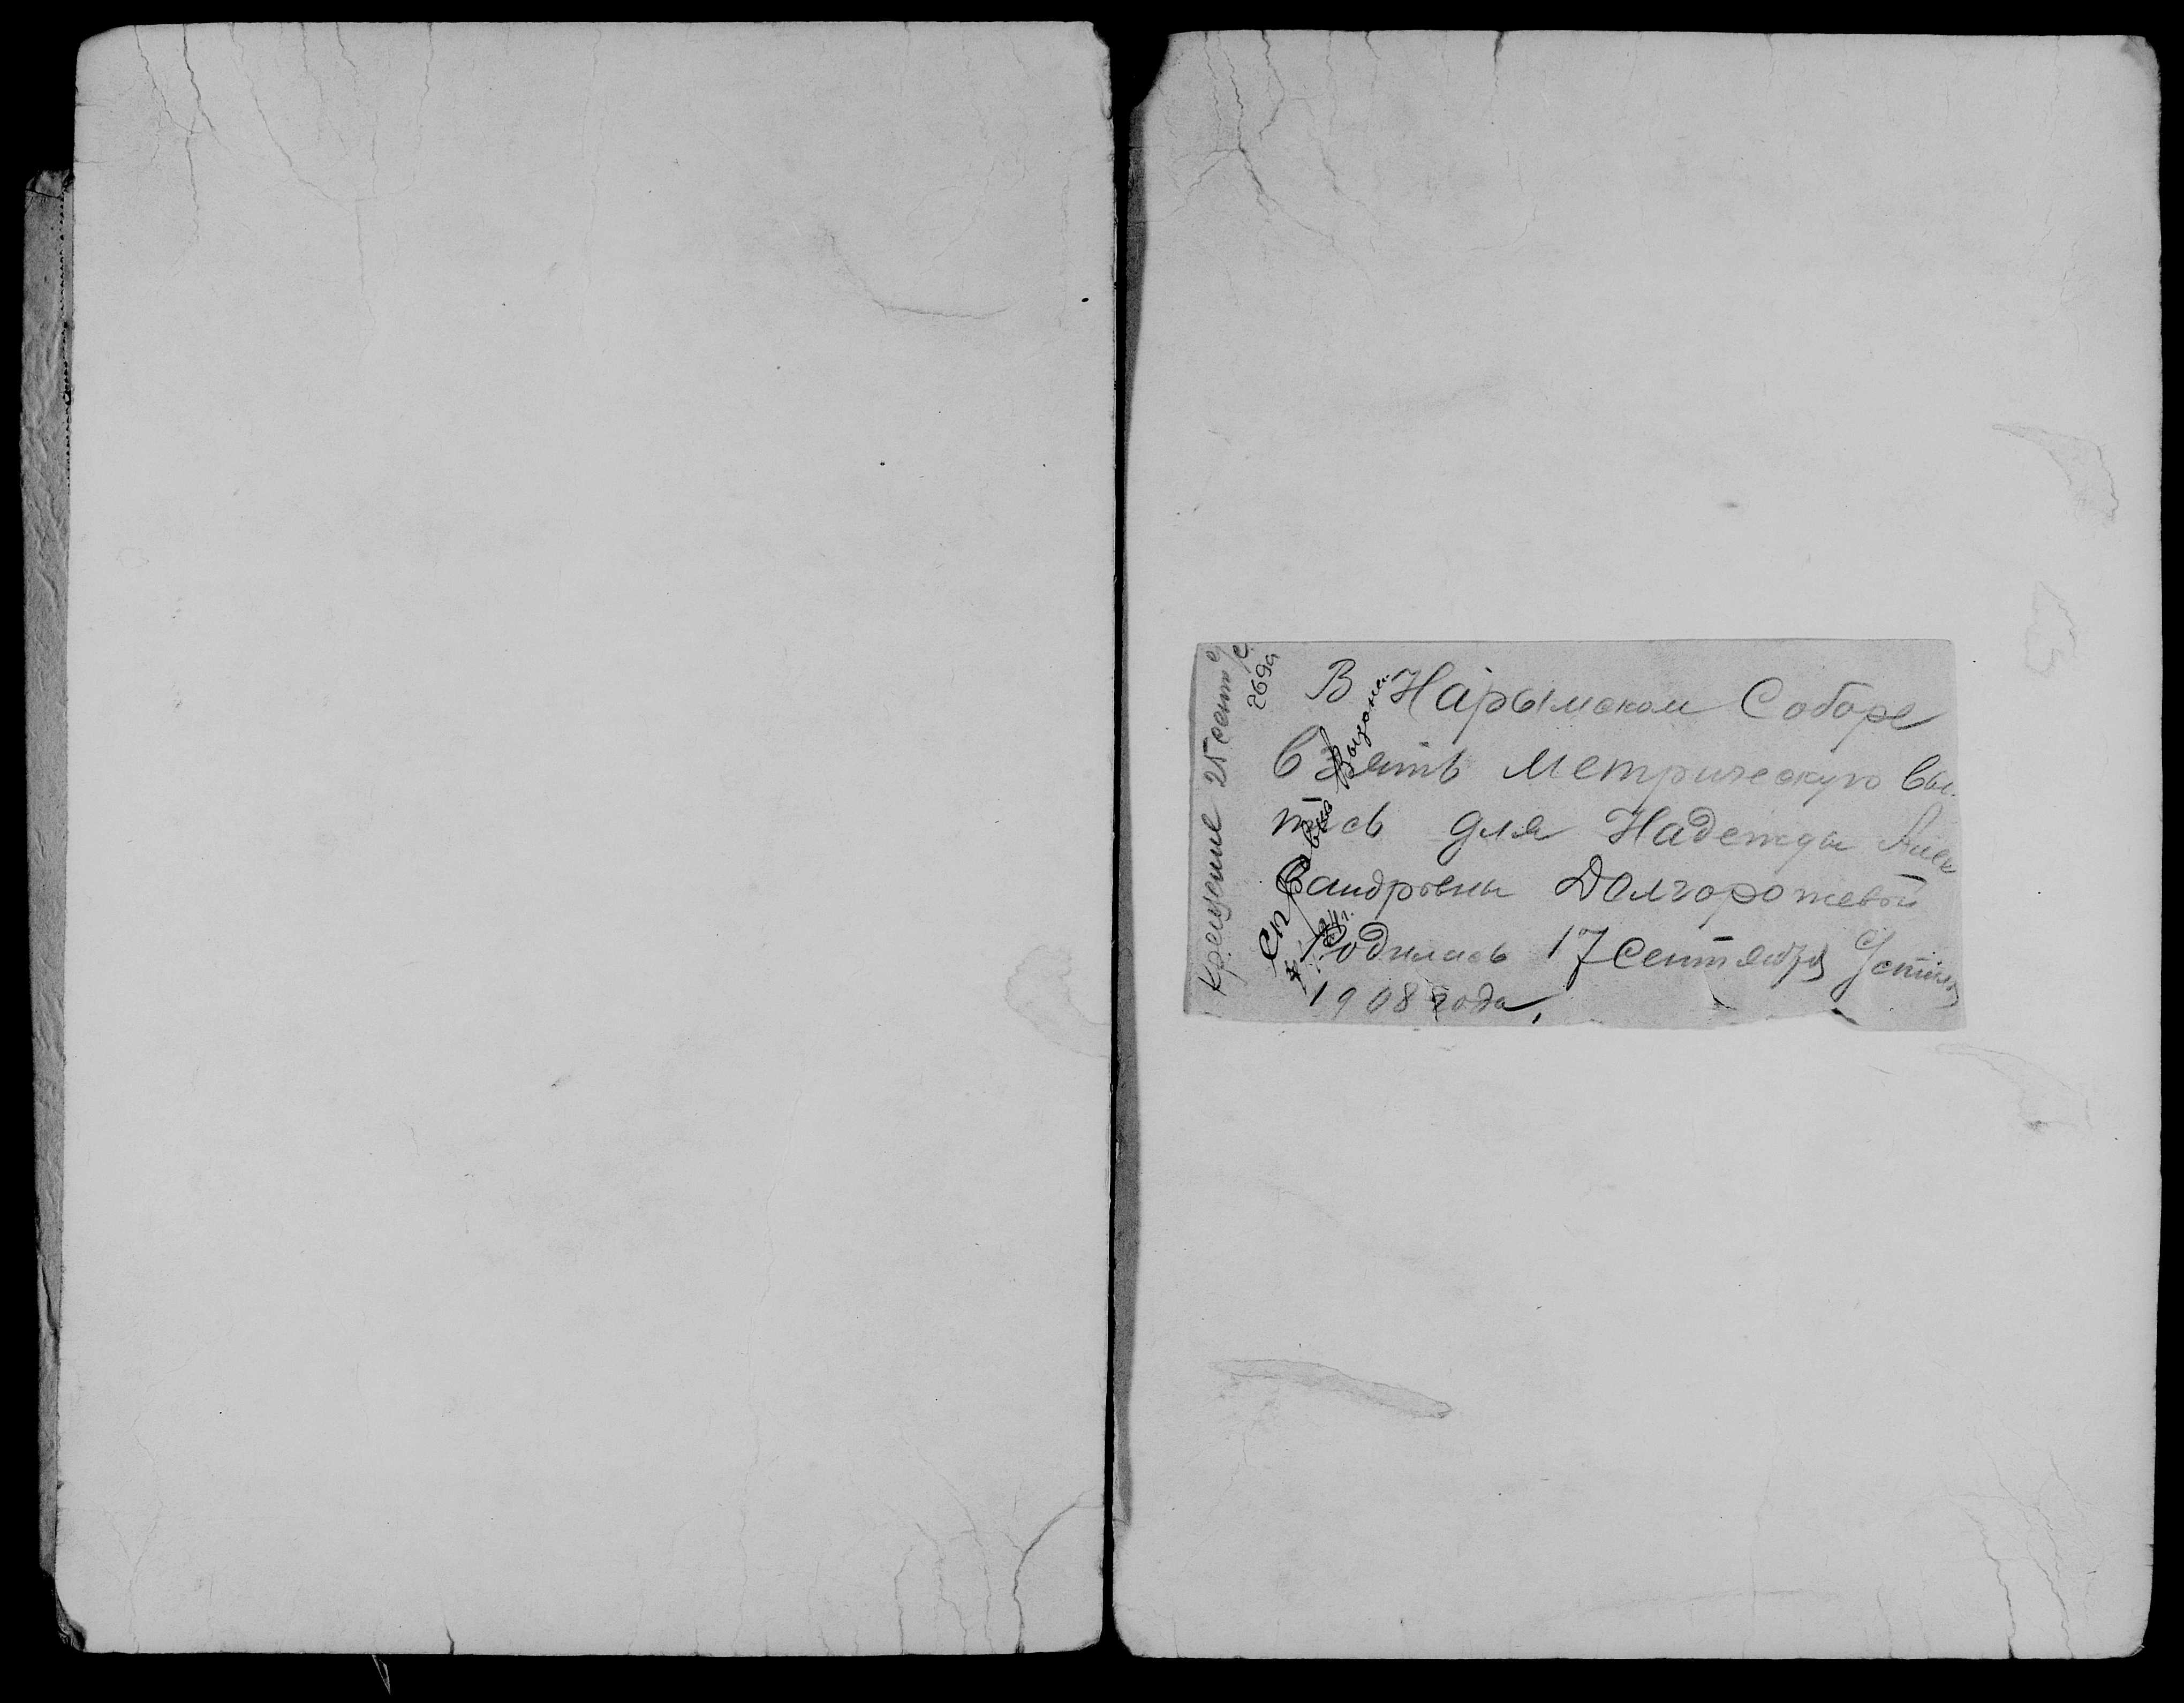 В Нарымском Соборе
взять метрическую вы-
пись для Надежды Алек
сандровны Долгорожевой
Родилась 17 сентября
1908 года.
Крещение 25 сент
Справка Выдана